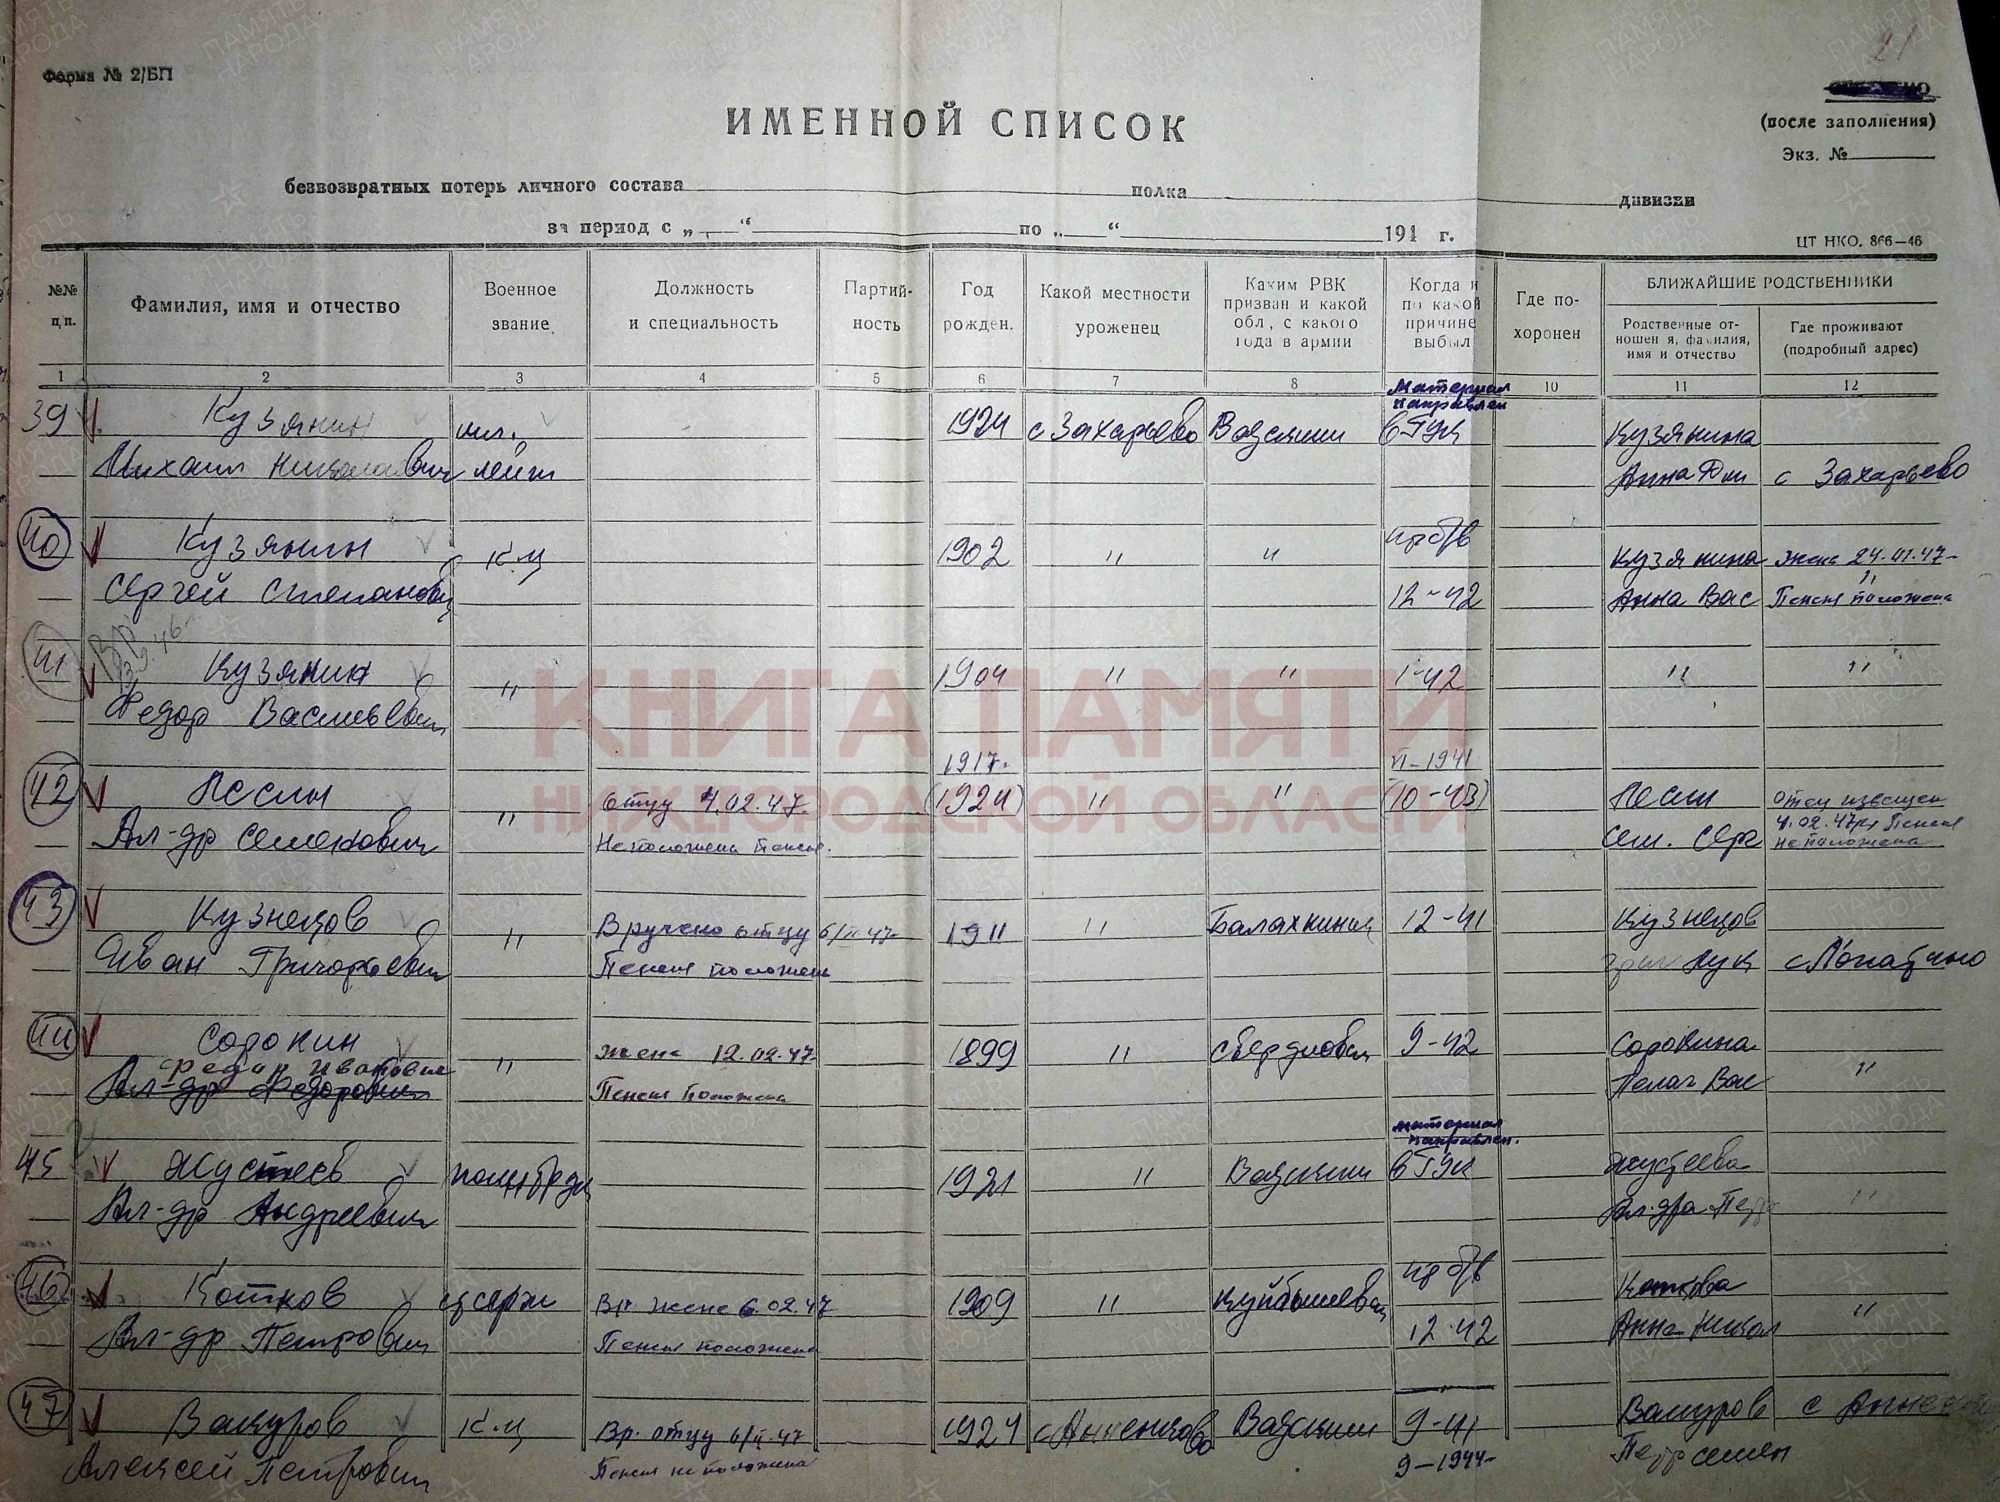 21
Форма № 2/БП
(после заполнения)
Экз. №
ИМЕННОЙ СПИСОК
безвозвратных потерь личного состава полка дивизии
за период с „ “ по „ “ 194 г.
ЦТ НКО. 866—46
№№ п/п.
Фамилия, имя и отчество
Военное звание
Должность и специальность
Партий-ность
Год рожден.
Какой местности уроженец
Каким РВК призван и какой обл., с какого года в армии
Когда и по какой причине выбыл
Где по-хоронен
БЛИЖАЙШИЕ РОДСТВЕННИКИ
Родственные от-ношения, фамилия, имя и отчество
Где проживают (подробный адрес)
1 2 3 4 5 6 7 8 10 11 12
материал
направлен
39 Кузянин мл. 1924 с Захарьево Вадский в ГУК Кузянина
Михаил Николаевич лейт Анна Дм с Захарьево
40 Кузянин К-ц 1902 " " пр б/в Кузянина жена 24.01.47
Сергей Степанович 12-42 Анна Вас Пенсия положена
41 Кузянин " 1904 " " 1-42 " "
Федор Васильевич
1917. VI-1941
42 Лесин " отцу 4.02.47. (1924) " " (10-43) Лесин отец извещен
Ал-др Семенович Не положена пенсия. Сем. Серг 4.02.47 Пенсия
не положена
43 Кузнецов " Вручено отцу 6/II-47 1911 " Балахнинск 12-41 Кузнецов
Иван Григорьевич Пенсия положена Лук с Лопатино
44 Сорокин " жене 12.02.47 1899 " Свердловск 9-42 Сорокина
Иванович
Ал-др Федорович Пенсия положена Пелаг Вас "
материал
направлен.
45 Жустеев 1921 " Вадский в ГУК Жустеева
Ал-др Андреевич Ал-дра "
46 Котков серж Вр. жене 6.02.47 1909 " Куйбышевск пр б/в Коткова
Ал-др Петрович Пенсия положена 12-42 Анна Никол "
47 Вакуров К-ц Вр. отцу 6/II-47 1924 с Анненково Вадский 9-41 Вакуров
Алексей Петрович Пенсия не положена 9-1944 Петр семен
КНИГА ПАМЯТИ
НИЖЕГОРОДСКОЙ ОБЛАСТИ
ПАМЯТЬ НАРОДА